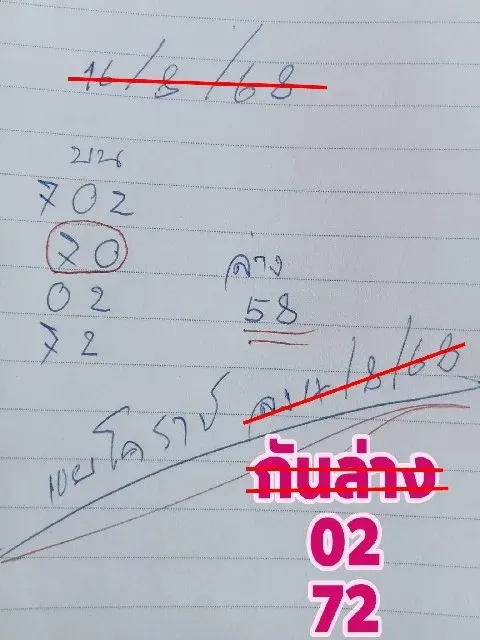 16/8/68
บน
702
70
02
72
ล่าง
58
โคราช /8/68
กันล่าง
02
72